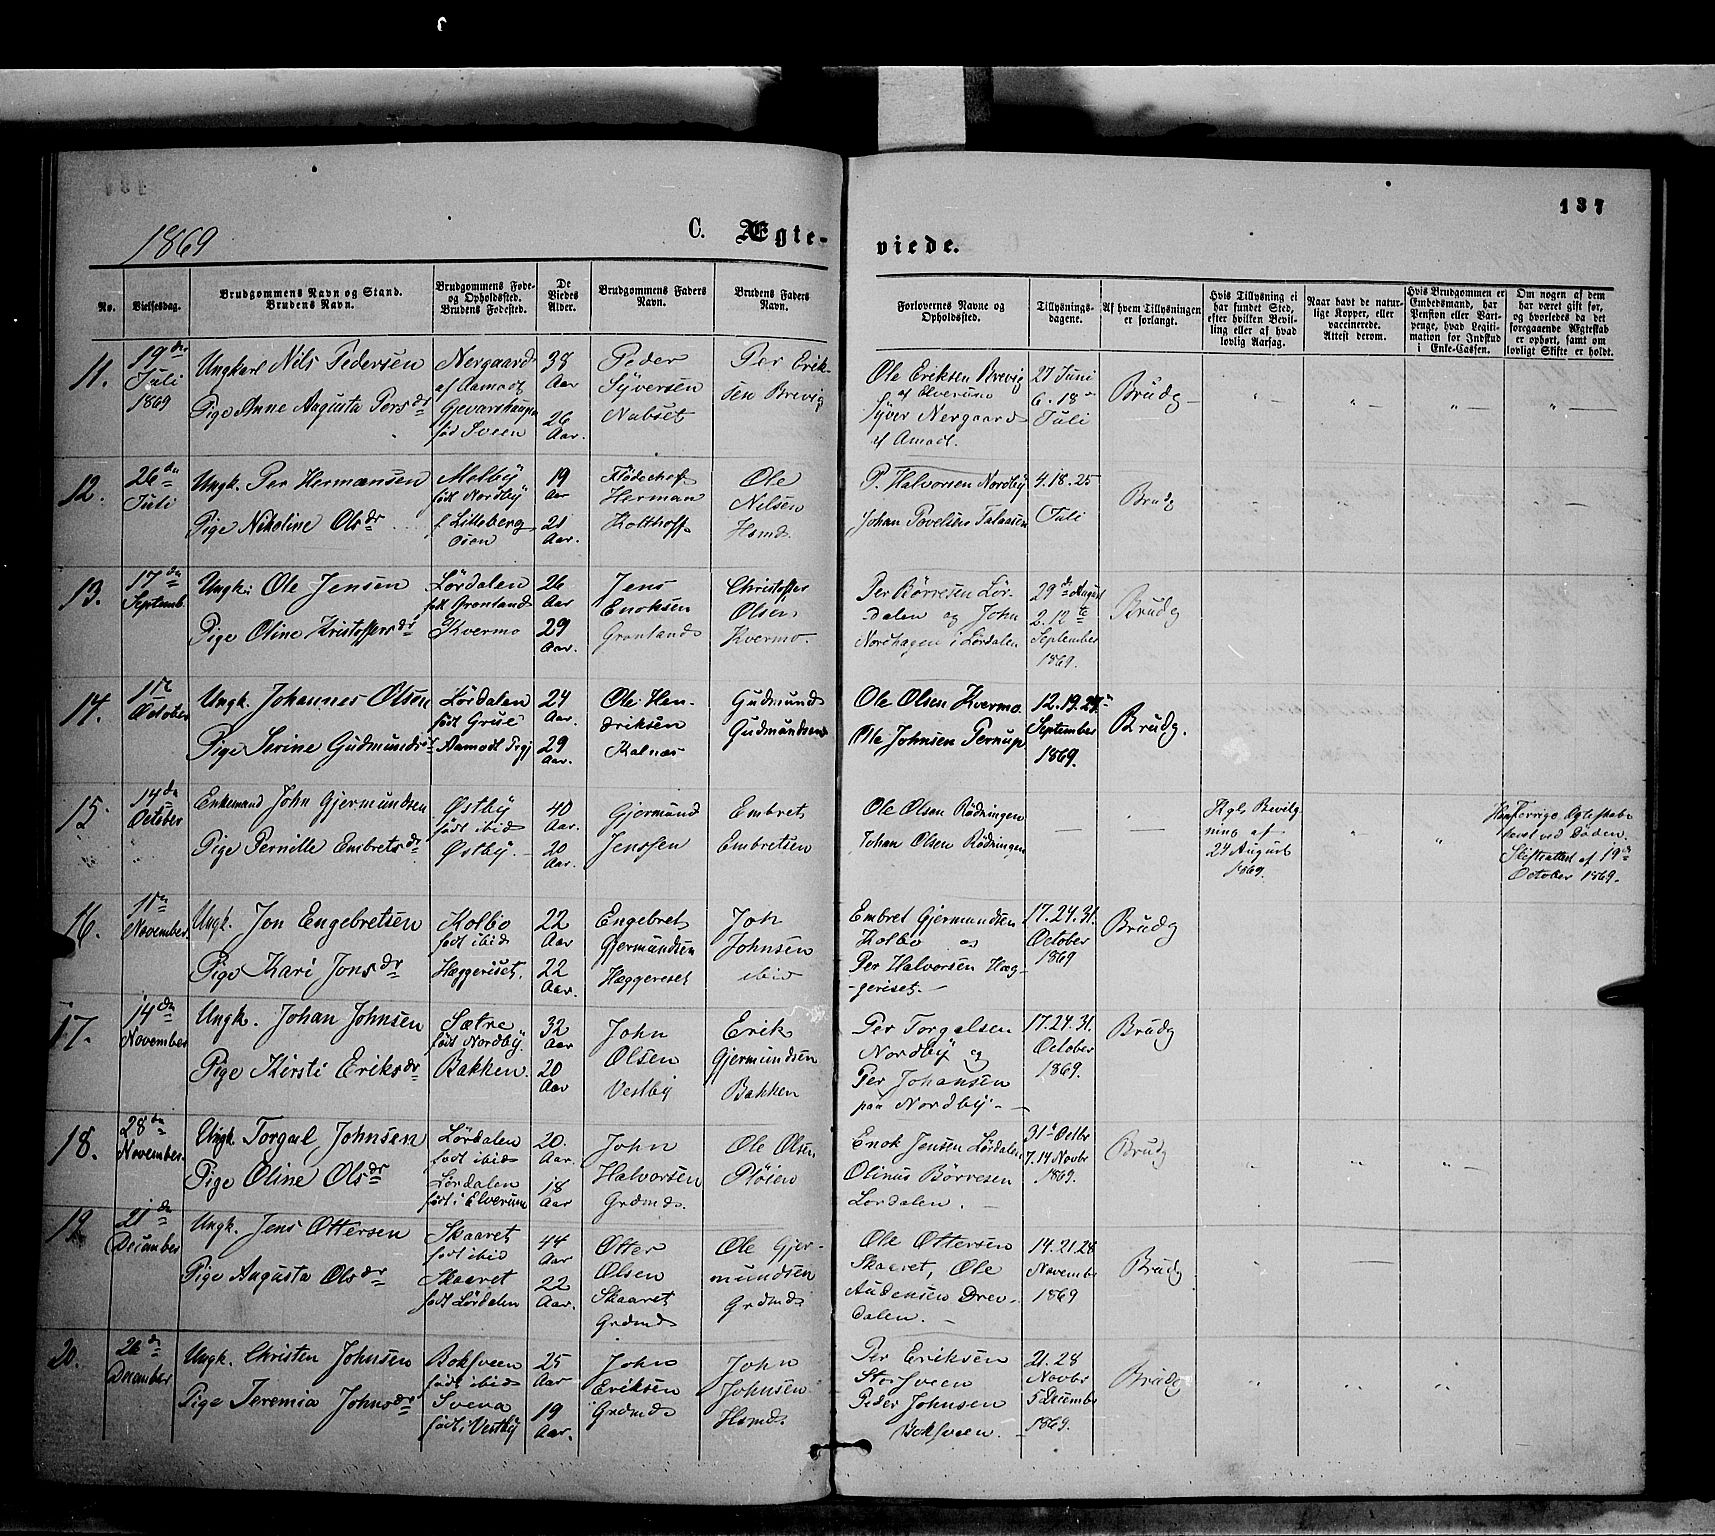 137
1869
C. Ægte-
viede.
No.
Vielsesdag.
Brudgommens Navn og Stand.
Brudens Navn.
Brudgommens Føde-
og Opholdssted.
Brudens Fødested.
De
Viedes
Alder.
Brudgommens Faders
Navn.
Brudens Faders
Navn.
Forlovernes Navne og
Opholdssted.
Tillysnings-
dagene.
Af hvem Tillysningen
er forlangt.
Hvis Tillysning ei
har fundet Sted,
efter hvilken Bevil-
ling eller af hvad
lovlig Aarsag.
Naar havt de natur-
lige Kopper, eller
vaccinerede.
Attest derom.
Hvis Brudgommen er
Embedsmand, har
Pension eller Vart-
penge, hvad Legiti-
mation for Indskud
i Enke-Cassen.
Om nogen af dem
har været gift før,
og hvorledes da det
foregaaende Ægteskab
er ophørt, samt om
lovligt Skifte er holdt.
11.
19de
Juli
1869
Ungkarl Nils Pedersen
Pige Anne Augusta Persdr
Nergaard
af Aamodt
født Sveen
38
Aar
26
Aar.
Peder
Syversen
Nabset
Per Erik-
sen Brevig
Ole Eriksen Brevig
af Elverum
Syver Nergaard
af Amodt.
27 Juni
6. 18de
Juli
Brudg
12.
26de
Juli
Ungk. Per Hermansen
Pige Nikoline Olsdr
Melby
født Nordby
f. Lilleberg
Osen
19
Aar
21
Aar.
Herman
Kolthoff
Ole
Nilsen
Hsmd.
P. Halvorsen Nordby
Johan Povelsen
4. 18. 25
Juli
Brudg
13.
17de
Septemb.
Ungk. Ole Jensen
Pige Oline Kristoffersdr
Lørdalen
født Grønland
Kvermo
26
Aar
29
Aar.
Jens
Enoksen
Grønland
Christoffer
Olsen
Kvermo.
Per Børresen Lør-
dalen og John
Nordhagen i Lørdalen
29de August
2. 12te
September
1869.
Brudg
14.
1ste
October
Ungk. Johannes Olsen
Pige Serine Gudmundsd
Lørdalen
født Grue
Aamodt Prgj
24
Aar.
29
Aar.
Ole Hen-
driksen
Kalnæs
Gudmund
Gudmundsen
Ole Olsen Kvermo
Ole Johnsen Ternup
12. 19.
September
1869.
Brudg.
15.
14de
October
Enkemand John Gjermundsen
Pige Pernille Embretsdr
Østby
født ibid
Østby.
40
Aar.
20
Aar.
Gjermund
Jenssen
Embret
Embretsen
Ole Olsen Rødningen
Johan Olsen Rødningen
Kgl. Bevilg
ning af
24 August
1869.
Forrige Ægteskab
hævet ved Døden.
Skifteattest af 19de
October 1869.
16.
11te
November
Ungk. Jon Engebretsen
Pige Kari Jonsdr
Kolbo
født ibid
Hæggeriset.
22
Aar
22
Aar.
Engebret
Gjermundsen
Hæggereset
Jon
Johnsen
ibid
Embret Gjermundsen
Kolbo og
Per Halvorsen Hæg-
geriset.
17. 24. 31.
October
1869
Brudg
17.
14de
November
Ungk. Johan Johnsen
Pige Kirsti Eriksdr
Sætre
født Nordby.
Bakken.
32
Aar
20
Aar
John
Olsen
Vestby
Erik
Gjermundsen
Bakken
Per Torgalsen
Nordby og
Per Johansen
paa Nordby.
17. 24. 31.
October
1869.
Brudg
18.
28de
November.
Ungk. Torgal Johnsen
Pige Oline Olsdr
Lørdalen
født ibid
Lørdalen
født i Elverum
20.
Aar.
18
Aar
John
Halvorsen
Grdmd.
Ole Olsen
Pløien
Enok Jensen Lørdalen
Olinus Børresen
Lørdalen.
31te Octbr
7. 14 Novbr
1869.
Brudg
19.
21de
December
Ungk. Jens Ottersen
Pige Augusta Olsdr
Skaaret
født ibid
Skaaret
født Lørdalen
44
Aar
22
Aar.
Otter
Olsen
Skaaret
Grdmd
Ole Gjer-
mundsen
Grdmd
Ole Ottersen
Skaaret, Ole
Audensen Drev-
dalen.
14. 21. 28
Novembr
1869
Brudg
20.
26de
December
Ungk. Christen Johnsen
Pige Jeremia Johnsdr
Boksveen
født ibid
Svena
født i Vestby
25
Aar
19
Aar.
John
Eriksen
Grdmd
John
Johnsen
Hsmd
Per Eriksen
Storsveen
Peder Johnsen
Boksveen.
21. 28
Novbr
5 Decembr
1869.
Brudg